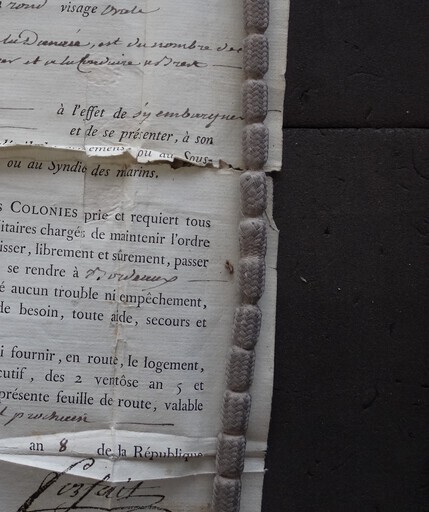 rond visage ovale
la Danaée, est du nombre des
et a la Conduire a Brest
à l'effet de s'y embarquer
et de se présenter, à son
ou au Sous-
ou au Syndic des marins.
COLONIES prie et requiert tous
itaires chargés de maintenir l'ordre
isser, librement et sûrement, passer
se rendre à Bordeaux
é aucun trouble ni empêchement,
de besoin, toute aide, secours et
i fournir, en route, le logement,
cutif, des 2 ventôse an 5 et
présente feuille de route, valable
prochain
an 8 de la République
Forfait